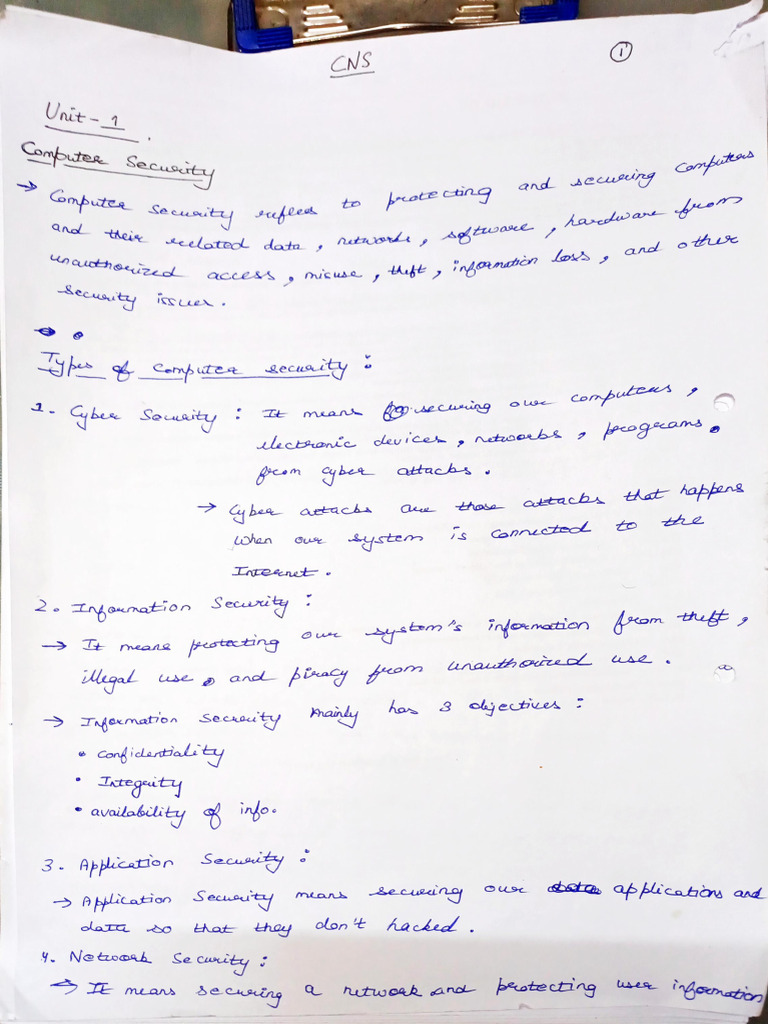 CNS
1
Unit - 1
Computer Security
→ Computer Security refers to protecting and securing computers
and their related data, networks, software, hardware from
unauthorized access, misuse, theft, information loss, and other
security issues.
Types of Computer security :
1. Cyber Security : It means securing our computers,
electronic devices, networks, programs.
from cyber attacks.
→ Cyber attacks are those attacks that happens
when our system is connected to the
Internet.
2. Information Security :
→ It means protecting our system's information from theft,
illegal use, and piracy from unauthorized use.
→ Information Security Mainly has 3 objectives :
• confidentiality
• Integrity
• availability of info.
3. Application Security :
→ Application Security means securing our applications and
data so that they don't hacked.
4. Network Security :
→ It means securing a network and protecting user information